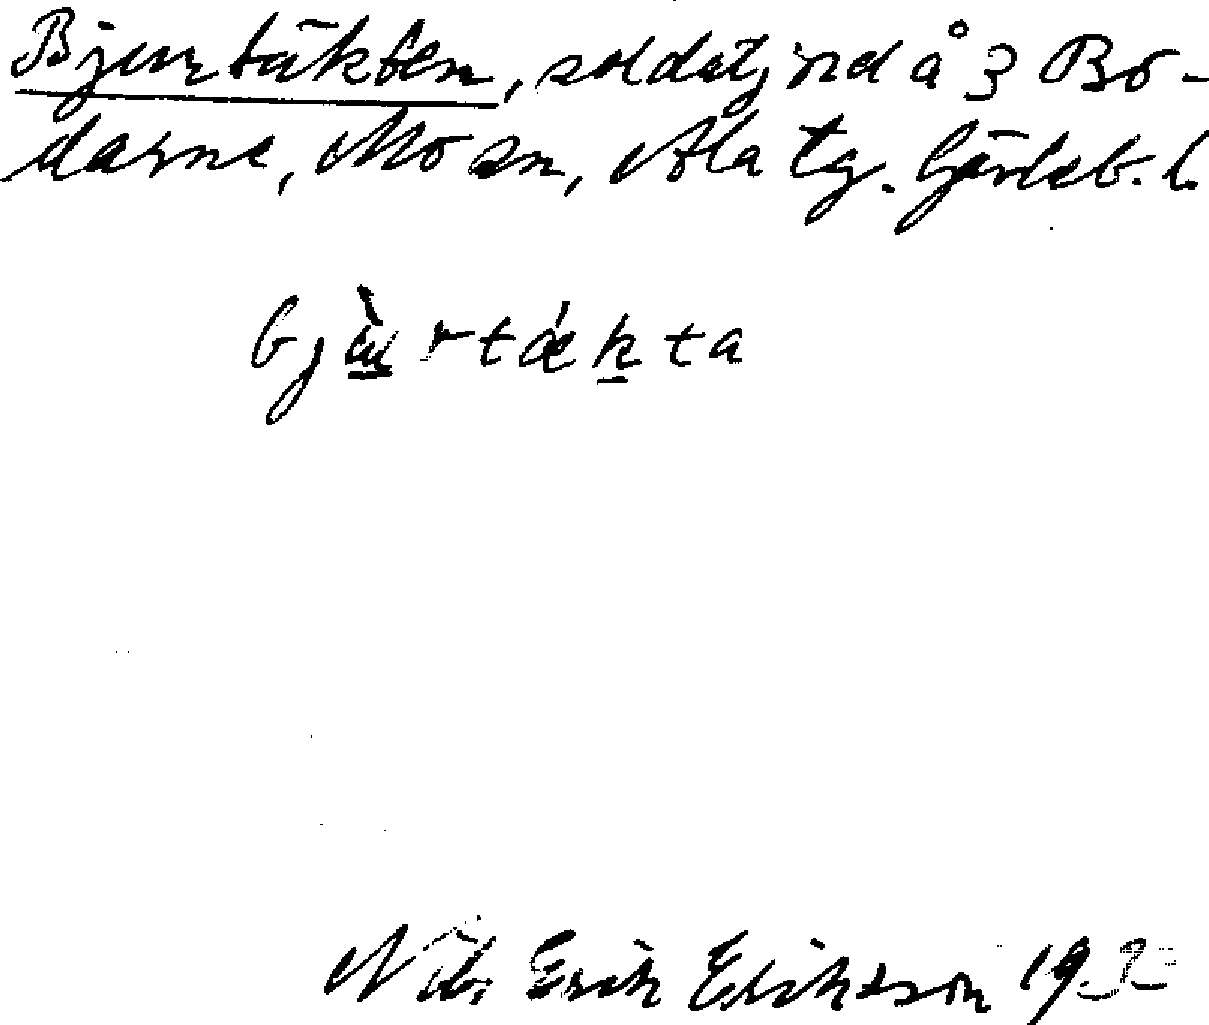 Bjurtäkten, soldatjord å 3 Bo-
darne, Mo sn, Ala tg. Gävleb. l.
bjùrtǽkta
Erik Eriksson